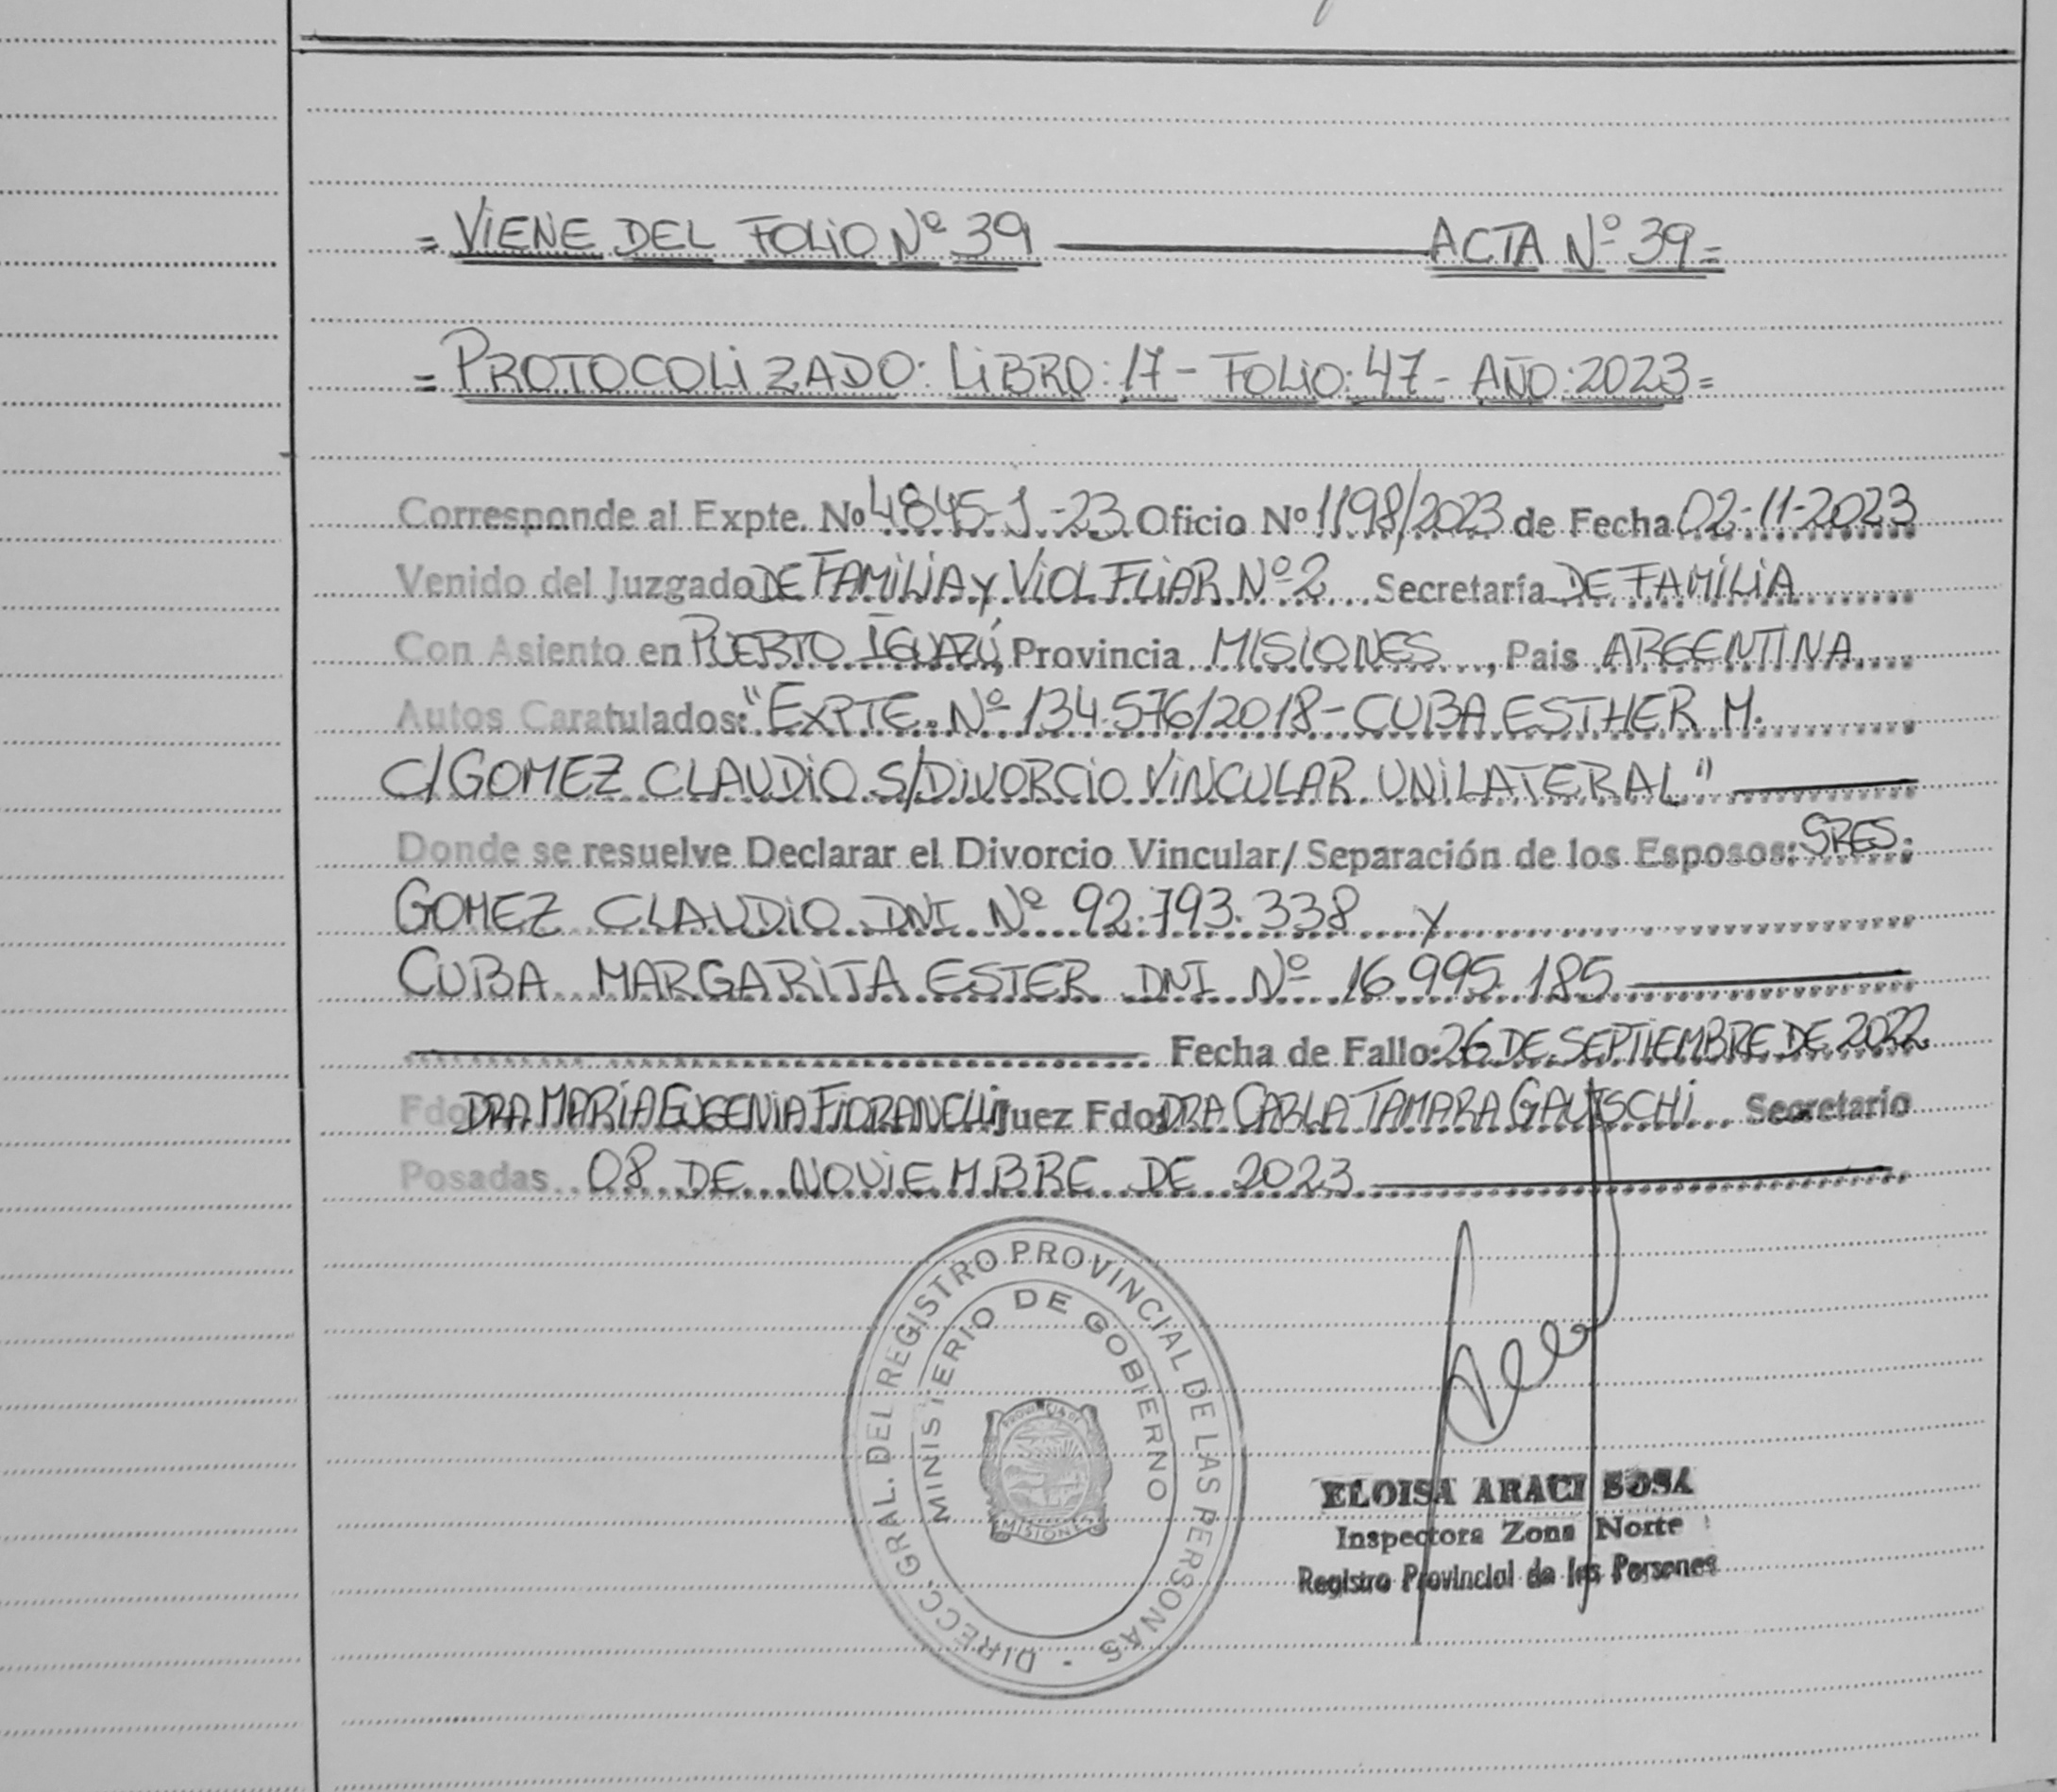 = VIENE DEL FOLIO Nº 39 ACTA Nº 39 =
= PROTOCOLIZADO: LIBRO: 17 - FOLIO: 47 - AÑO: 2023 =
Corresponde al Expte. Nº 4845-J-23 Oficio Nº 1198/2023 de Fecha 02-11-2023
Venido del Juzgado DE FAMILIA Y VIOL FLIAR Nº 2 Secretaría DE FAMILIA
Con Asiento en PUERTO IGUAZÚ, Provincia MISIONES, Pais ARGENTINA
Autos Caratulados: "EXPTE. Nº 134.576/2018 - CUBA ESTHER M.
C/GOMEZ CLAUDIO S/DIVORCIO VINCULAR UNILATERAL"
Donde se resuelve Declarar el Divorcio Vincular/ Separación de los Esposos: SRES:
GOMEZ CLAUDIO DNI Nº 92.793.338 Y
CUBA MARGARITA ESTER DNI Nº 16.995.185
Fecha de Fallo: 26 DE SEPTIEMBRE DE 2022
Fdo DRA. MARÍA EUGENIA FIORANELLI Juez Fdo: DRA CARLA TAMARA GAUTSCHI Secretario
Posadas 08 DE NOVIEMBRE DE 2023
DIRECC. GRAL. DEL REGISTRO PROVINCIAL DE LAS PERSONAS -
MINISTERIO DE GOBIERNO
PROVINCIA DE
MISIONES
ELOISA ARACI SOSA
Inspectora Zona Norte
Registro Provincial de las Personas